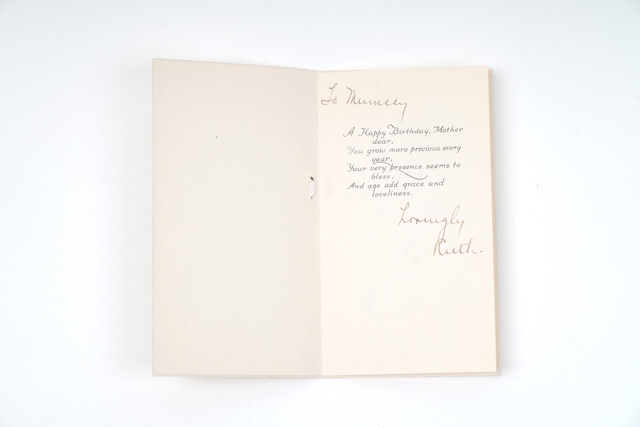 To Mumsey
A Happy Birthday, Mother
dear,
You grow more precious every
year,
Your very presence seems to
bless,
And age add grace and
loveliness.
Lovingly
Ruth.